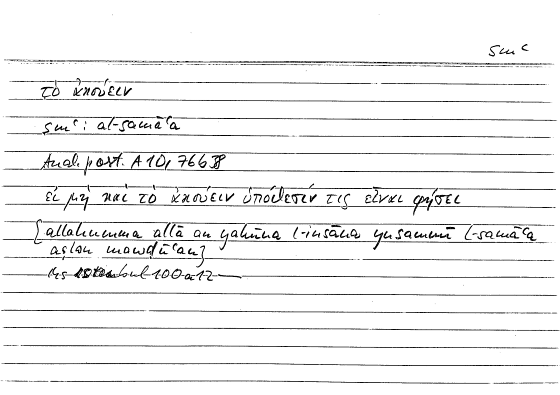 smᶜ
τὸ ἀκούειν
smᶜ: al-samāᶜa
Anal. post. A 10, 76b38
εἰ μὴ καὶ τὸ ἀκούειν ὑπόθεσίν τις εἶναι φήσει
{allahumma allā an yakūna l-insāna yusammī l-samāᶜa
aṣlan mawḍūᶜan}
Istanbul 100a12